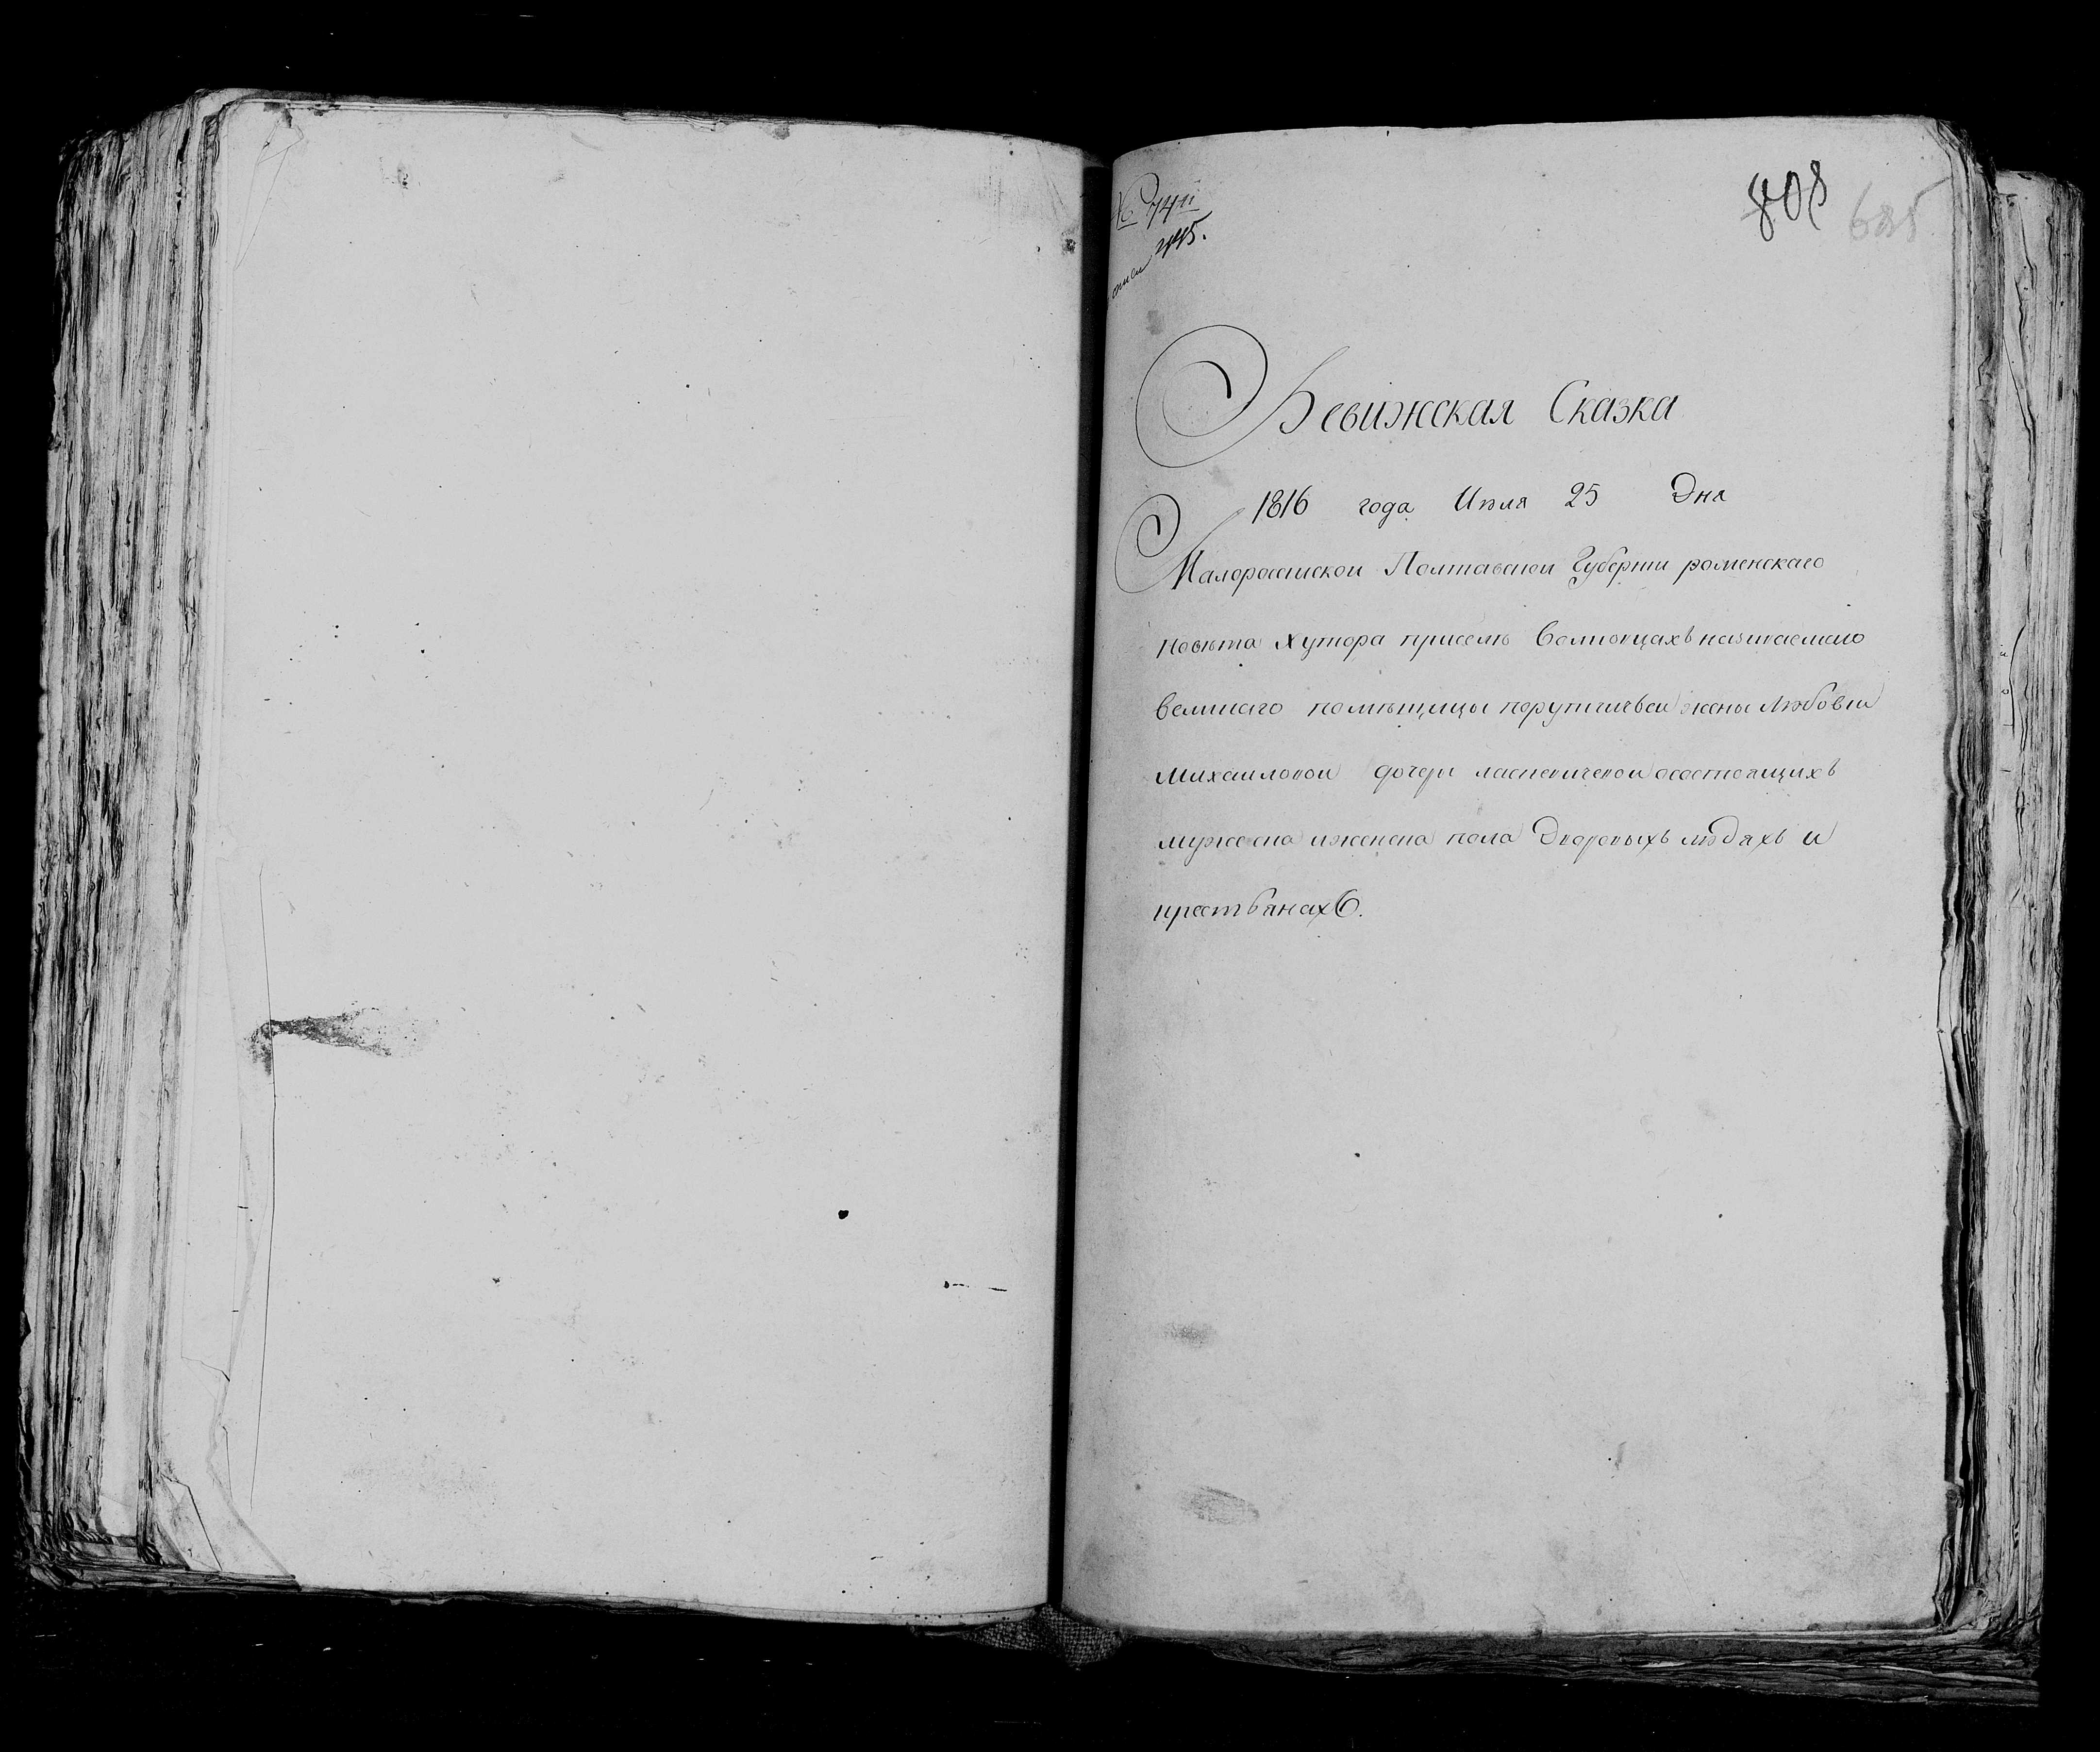 № 74й
808 685
Ревижская Сказка
1816 года Июля 25 Дня
Малоросииской Полтавской Губернии роменскаго
повѣта Хутора приселѣ Волковцахъ называемаго
великаго помѣщицы порутчичьей жены Любовы
Михаиловой дочери осостоящихъ
мужеска иженска пола Дворовыхъ людяхъ и
крестьянахъ.